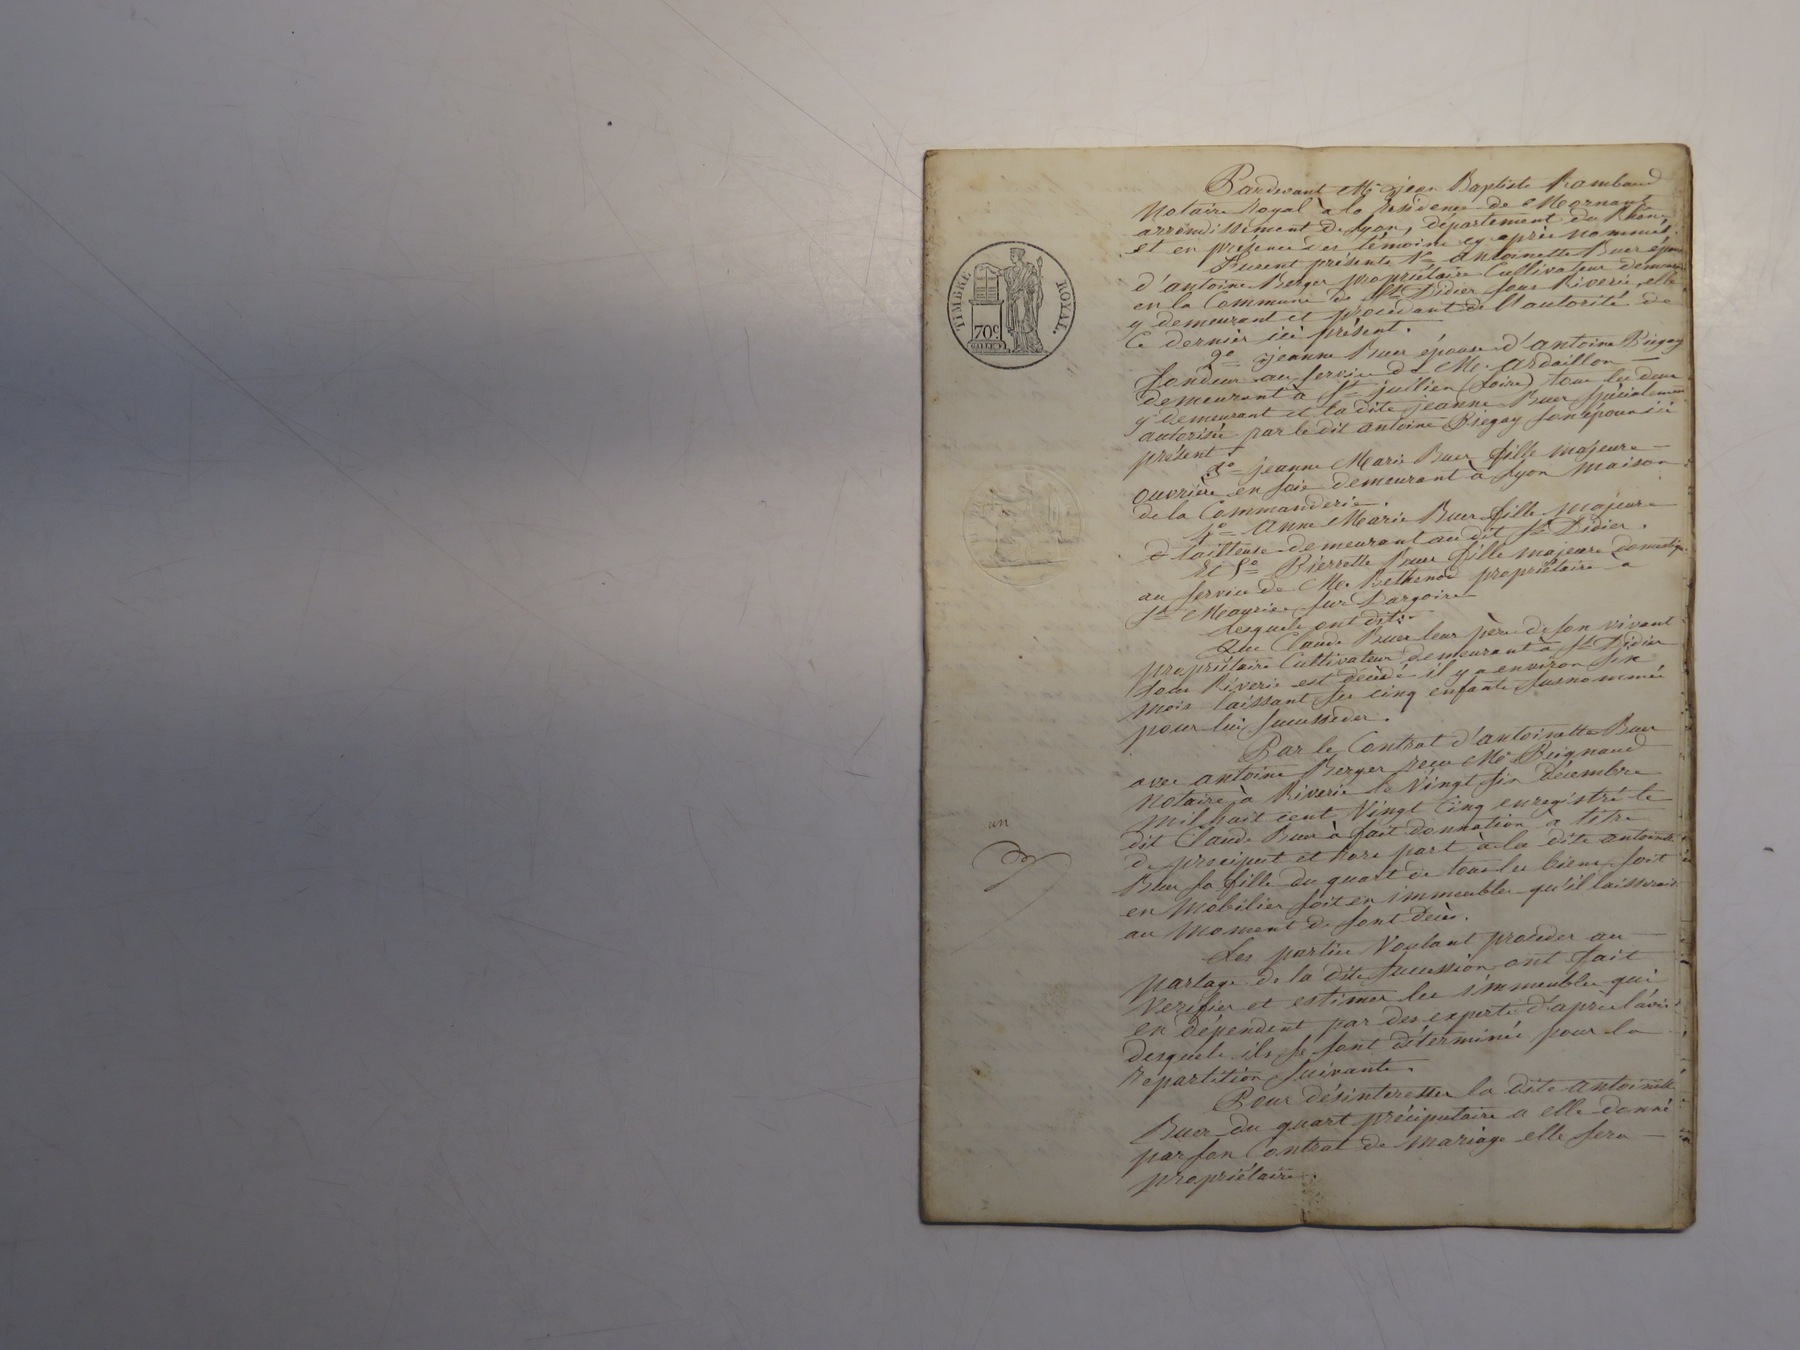 Pardevant Me jean Baptiste Rambaud
Notaire Royal à la Résidence de Mornant
arrondissement de Lyon, département du Rhône,
et en présence des témoins cy après nommés.
Furent présents 1o antoinette Buer épouse
d'antoine Berger propriétaire Cultivateur demeurant
en la Commune de St Didier sous Riverie, elle
y demeurant et procédant de l'autorité de
Ce dernier ici présent.
2o jeanne Buer épouse d'antoine
fondeur au service de Mr. ardaillon
demeurant à St jullien (Loire) tous les deux
y demeurant et la dite jeanne Buer spécialement
autorisée par le dit antoine son époux ici
présent.
3o jeanne Marie Buer fille majeure
ouvrière en soie demeurant à Lyon maison
de la Commanderie.
4o Anne Marie Buer fille majeure
tailleuse demeurant au dit St Didier.
Et 5o Pierrette Buer fille majeure domestique
au service de Mr. Bethenod propriétaire a
St Maurice sur Dargoire
Lesquels ont dit:
Que Claude Buer leur père de son vivant
propriétaire Cultivateur demeurant à St Didier
sous Riverie est décédé il y a environ six
mois laissant ses cinq enfants susnommés
pour lui succéder.
Par le Contrat d'antoinette Buer
avec antoine Berger reçu Me Reignaud
Notaire à Riverie le Vingt six décembre
mil huit cent Vingt Cinq enregistré le
dit Claude Buer à fait donnation à titre
de préciput et hors part à la dite antoinette
Buer sa fille du quart de tous les biens soit
en Mobilier soit en immeubles qu'il laisserait
au Moment de sont décès.
Les parties Voulant procéder au
partage de la dite succession ont fait
Verifier et estimer les immeubles qui
en dépendent par des experts d'après l'avis
desquels ils se sont déterminés pour la
Répartition suivante.
Pour désinteresser la dite antoinette
Buer du quart préciputaire a elle donné
par son Contrat de Mariage elle sera
propriétaire.
TIMBRE ROYAL.
70c
un